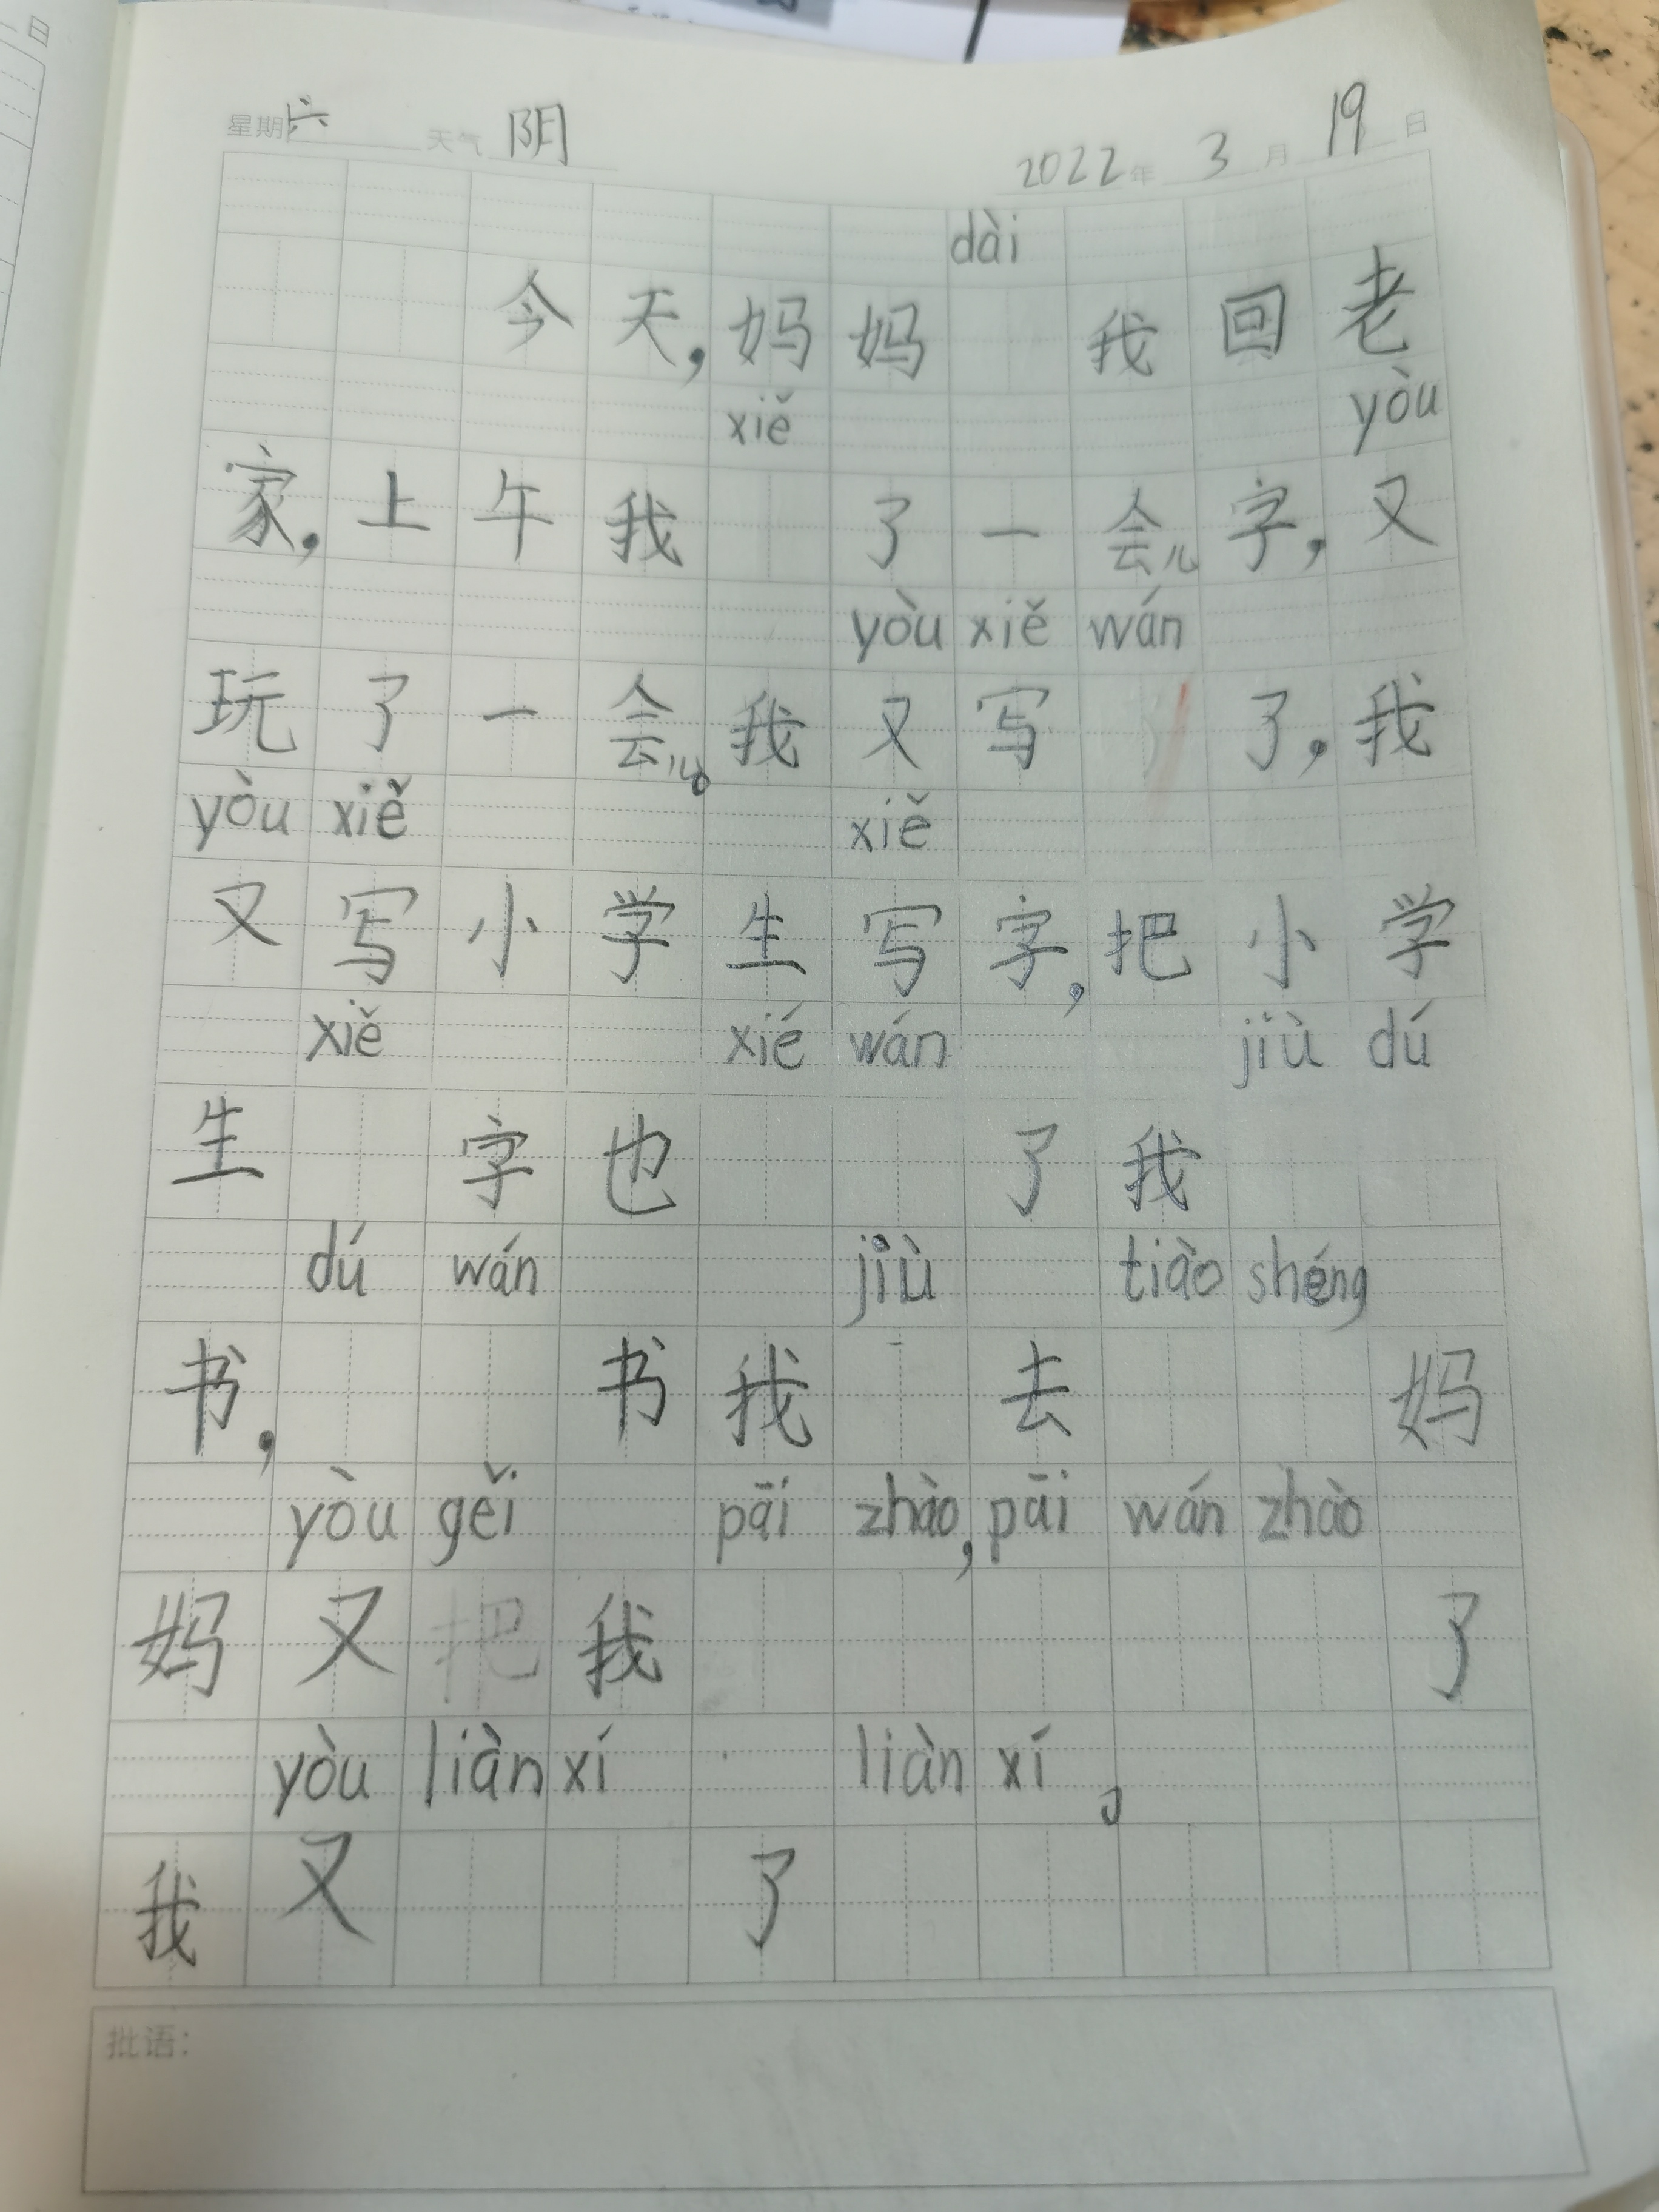 日
星期六 天气 阴 2022年 3月 19日
dài
今天,妈妈 我回老
xiě yòu
家,上午我 了一会儿字,又
yòu xiě wán
玩了一会儿。我又写 了,我
yòu xiě xiě
又写小学生写字,把小学
xiě xié wán jiù dú
生 字也 了我
dú wán jiù tiào shéng
书, 书我 去 妈
yòu gěi pāi zhào, pāi wán zhào
妈又把我 了
yòu liàn xí liàn xí 。
我又 了
批语: